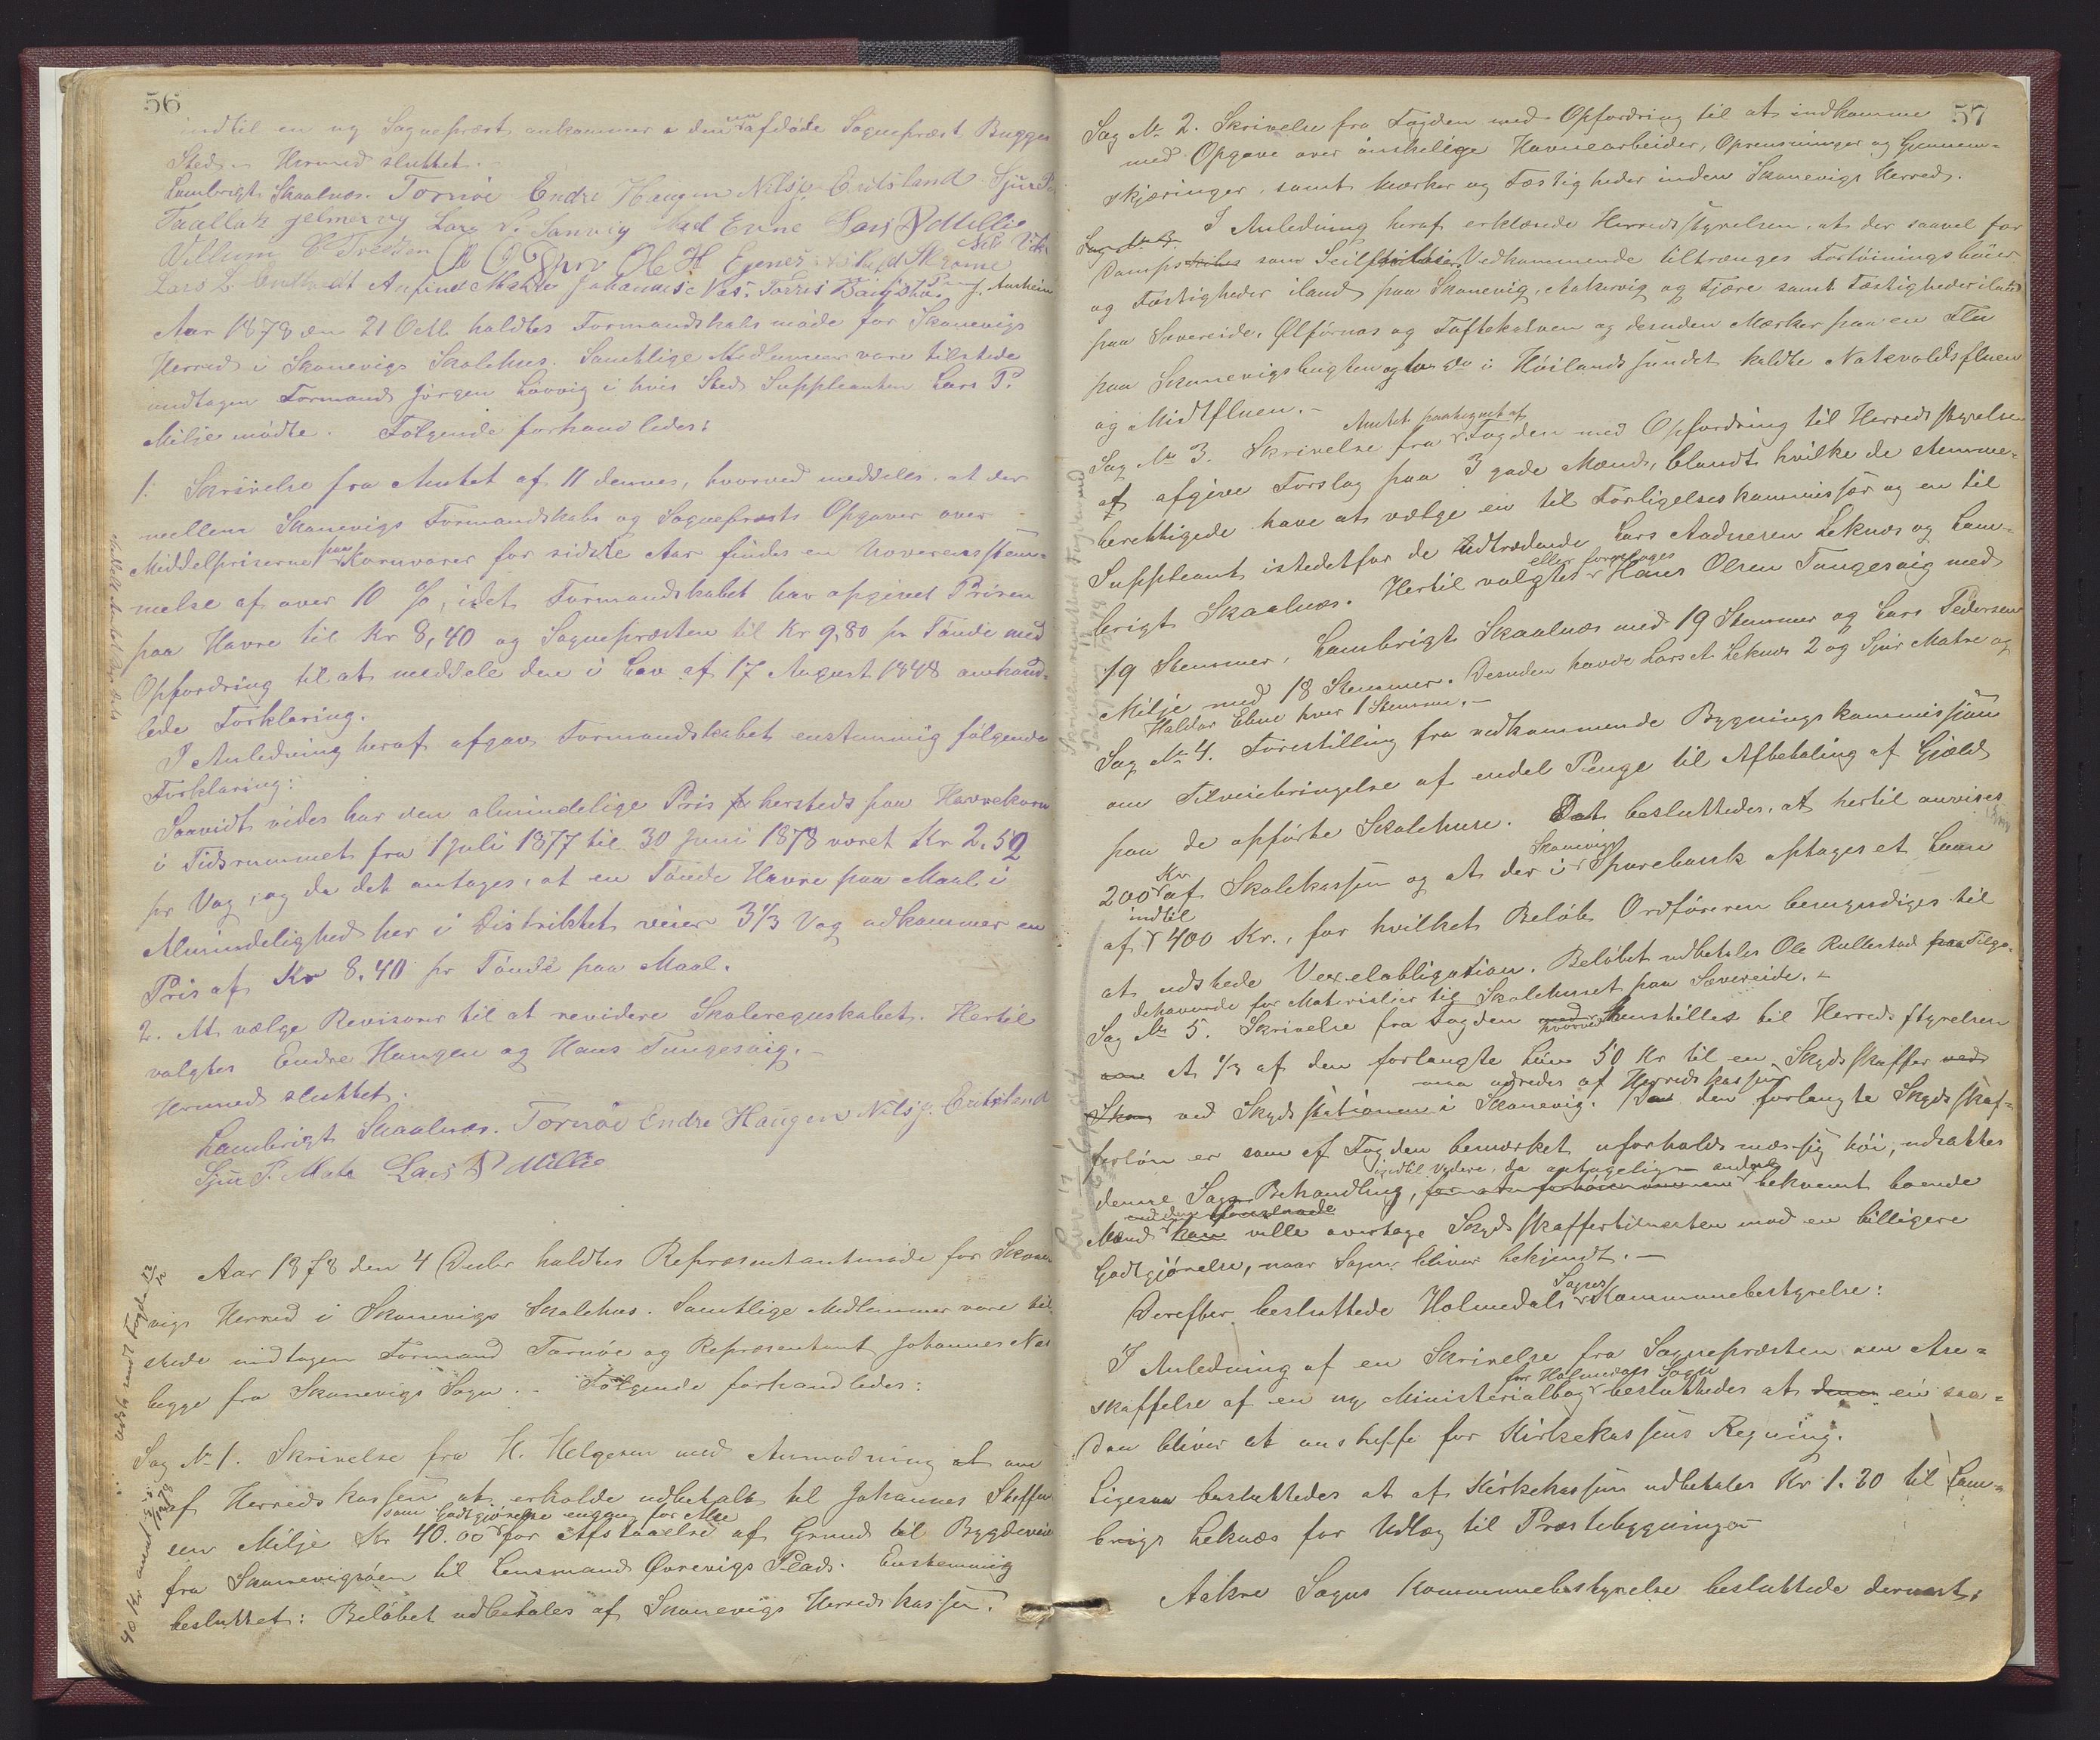 56
indtil en ny Sognepræst ankommer i den nu afdøde Sognepræst Bugges
Sted. – Hermed sluttet. –
Lambrigt Skaalnæs. Tornöe Endre Haugen Nils J. Eritsland Sjur P.
Taallak Jelmervig Lars L. Sanvig Lars P Millie
Villum Ole H. Egenes
Lars L. Anfind Matre Johannes Næs. Torris J. Austrheim
Aar 1878 den 21 Octb. holdtes Formandskabsmöde for Skonevigs
Herred i Skonevigs Skolehus. Samtlige Medlemmer vare tilstede
undtagen Formand Jörgen Lövvig i hvis Sted Suppleanten Lars P.
Milje mödte. Fölgende forhandledes:
1. Skrivelse fra Amtet af 11 dennes, hvorved meddeles, at der
mellem Skonevigs Formandskabs og Sognepræsts Opgaver over
Middelpriserne paa Kornvarer for sidste Aar findes en Uoverensstem-
melse af over 10 %, idet Formandskabet har opgivet Prisen
paa Havre til Kr 8,40 og Sognepræsten til Kr 9,80 pr Tönde med
Opfordring til at meddele den i Lov af 17 August 1848 omhand-
lede Forklaring.
I Anledning heraf afgav Formandskabet enstemmig fölgende
Forklaring:
Saavidt vides har den almindelige Pris hersteds paa Havrekorn
i Tidsrummet fra 1 Juli 1877 til 30 Juni 1878 været Kr 2.52
pr Vog, og da det antages, at en Tönde Havre paa Maal i
Almindelighed her i Distriktet veier 3 1/3 Vog udkommer en
Pris af Kr 8.40 pr Tönde paa Maal.
2. At vælge Revisorer til at revidere Skoleregnskabet. Hertil
valgtes Endre Haugen og Hans Tungesvig. –
Hermed sluttet.
Lambrigt Skaalnæs. Tornöe Endre Haugen Nils J. Eritsland
Sjur P. Matre Lars P Millie
Aar 1878 den 4 Decbr holdtes Repræsentantmöde for Skone-
vigs Herred i Skonevigs Skolehus. Samtlige Medlemmer vare til-
stede undtagen Formand Tornöe og Repræsentant Johannes Næs
begge fra Skonevigs Sogn. – Fölgende forhandledes:
Sag No 1. Skrivelse fra H. Helgesen med Anmodning at om
af Herredskassen at erholde udbetalt til Johannes Steffen-
som Godtgjörelse engang for Alle
sen Milje Kr 40.00 for Afstaaelse af Grund til Bygdevei
fra Skonevigsöen til Lensmand Øvrevigs Plads. Enstemmig
besluttet: Belöbet udbetales af Skonevigs Herredskasse.
57
Sag No 2. Skrivelse fra Fogden med Opfordring til at indkomme
med Opgave over önskelige Havnearbeider, Oprensninger og Gjennem-
skjæringer, samt Mærker og Fæstigheder inden Skonevigs Herred.
Sag No 3. I Anledning heraf erklærede Herredsstyrelsen, at der saavel for
Dampskibes som Seilskibes Vedkommende tiltrænges Fortöiningsböier
og Fæstigheder iland paa Skonevig, Aakervig og Fjære samt Fæstigheder iland
paa Sævereide, Ølförnæs og Toftekalven og desuden Mærker paa en Flu
paa Skonevigsbugten og to do i Höilandssundet kaldte Nakvoldsfluen
og Midtfluen. –
Amtet paategnet af
Sag No 3. Skrivelse fra Fogden med Opfordring til Herredsstyrelsen
at afgive Forslag paa 3 gode Mænd, blandt hvilke de stemme-
berettigede have at vælge en til Forligelseskommissær og en til
Suppleant istedetfor de udtrædende Lars Aadnesen Leknæs og Lam-
eller foresloges
brigt Skaalnæs. Hertil valgtes Hans Olsen Tungesvig med
19 Stemmer, Lambrigt Skaalnæs med 19 Stemmer og Lars Pedersen
Milje med 18 Stemmer. Desuden havde Lars et Leknæs 2 og Sjur Matre og
Haldor Ebne hver 1 Stemme. –
Sag No 4. Forestilling fra vedkommende Bygningskommission
om Tilveiebringelse af endel Penge til Afbetaling af Gjæld
paa de opförte Skolehuse. Det besluttedes, at hertil anvises
Kr Skonevigs
200 af Skolekassen og at der i Sparebank optages et Laan
indtil
af 400 Kr., for hvilket Belöb Ordföreren bemyndiges til
at udstede Vexelobligation. Belöbet udbetales Ole Rullestad paa Tilgo-
dehavende for Materialier til Skolehuset paa Sævereide. –
Sag No 5. Skrivelse fra Fogden hvorved henstilles til Herredsstyrelsen
om at 1/3 af den forlangte Lön 50 Kr til en Skydsskaffer ved
maa udredes af Herredskassen
Skon ved Skydsstationen i Skonevig. Da den forlangte Skydsskaf-
ferlön er som af Fogden bemærket uforholdsmæssig höi, udsættes
indtil videre, da antagelig andre
denne Sags Behandling, bekvemt boende
Mænd kan ville overtage Skydsskaffertjenesten mod en billigere
Godtgjörelse, naar Sagen bliver bekjendt. –
Sogns
Derefter besluttede Holmedals Kommunebestyrelse:
I Anledning af en Skrivelse fra Sognepræsten om An-
for Holmedals Sogn
skaffelse af en ny Ministerialbog besluttedes at denne en saa-
dan bliver at anskaffe for Kirkekassens Regning.
Ligesaa besluttedes at af Kirkekassen udbetales Kr 1.20 til Lam-
brigt Leknæs for Udlæg til Præstebygningen
Aakre Sogns Kommunebestyrelse besluttede dernæst: